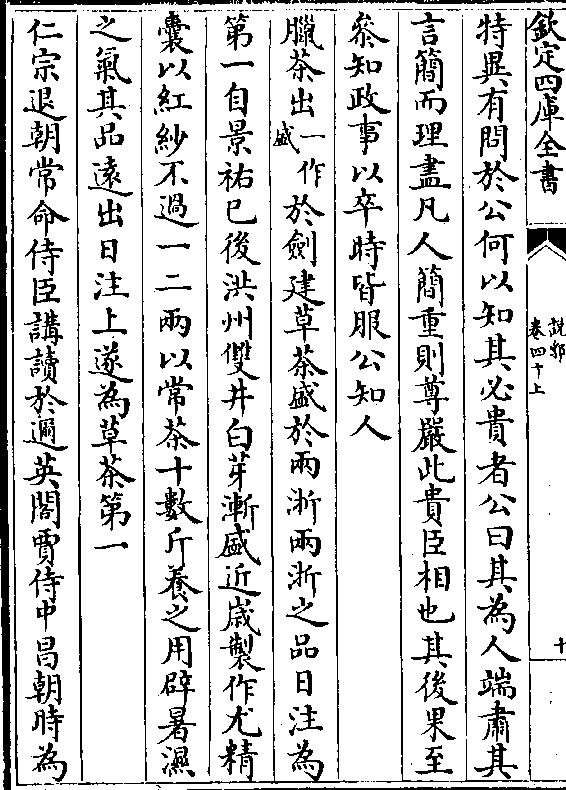 欽定四庫全書
說郛
卷四十上
十
特異有問於公何以知其必貴者公曰其為人端肅其
言簡而理盡凡人簡重則尊嚴此貴臣相也其後果至
叅知政事以卒時皆服公知人
臘茶出一作盛於劍建草茶盛於兩浙兩浙之品日注為
第一自景祐已後洪州雙井白芽漸盛近嵗製作尤精
囊以紅紗不過一二兩以常茶十數斤養之用辟暑濕
之氣其品遠出日注上遂為草茶第一
仁宗退朝常命侍臣講讀於邇英閣賈侍中昌朝時為